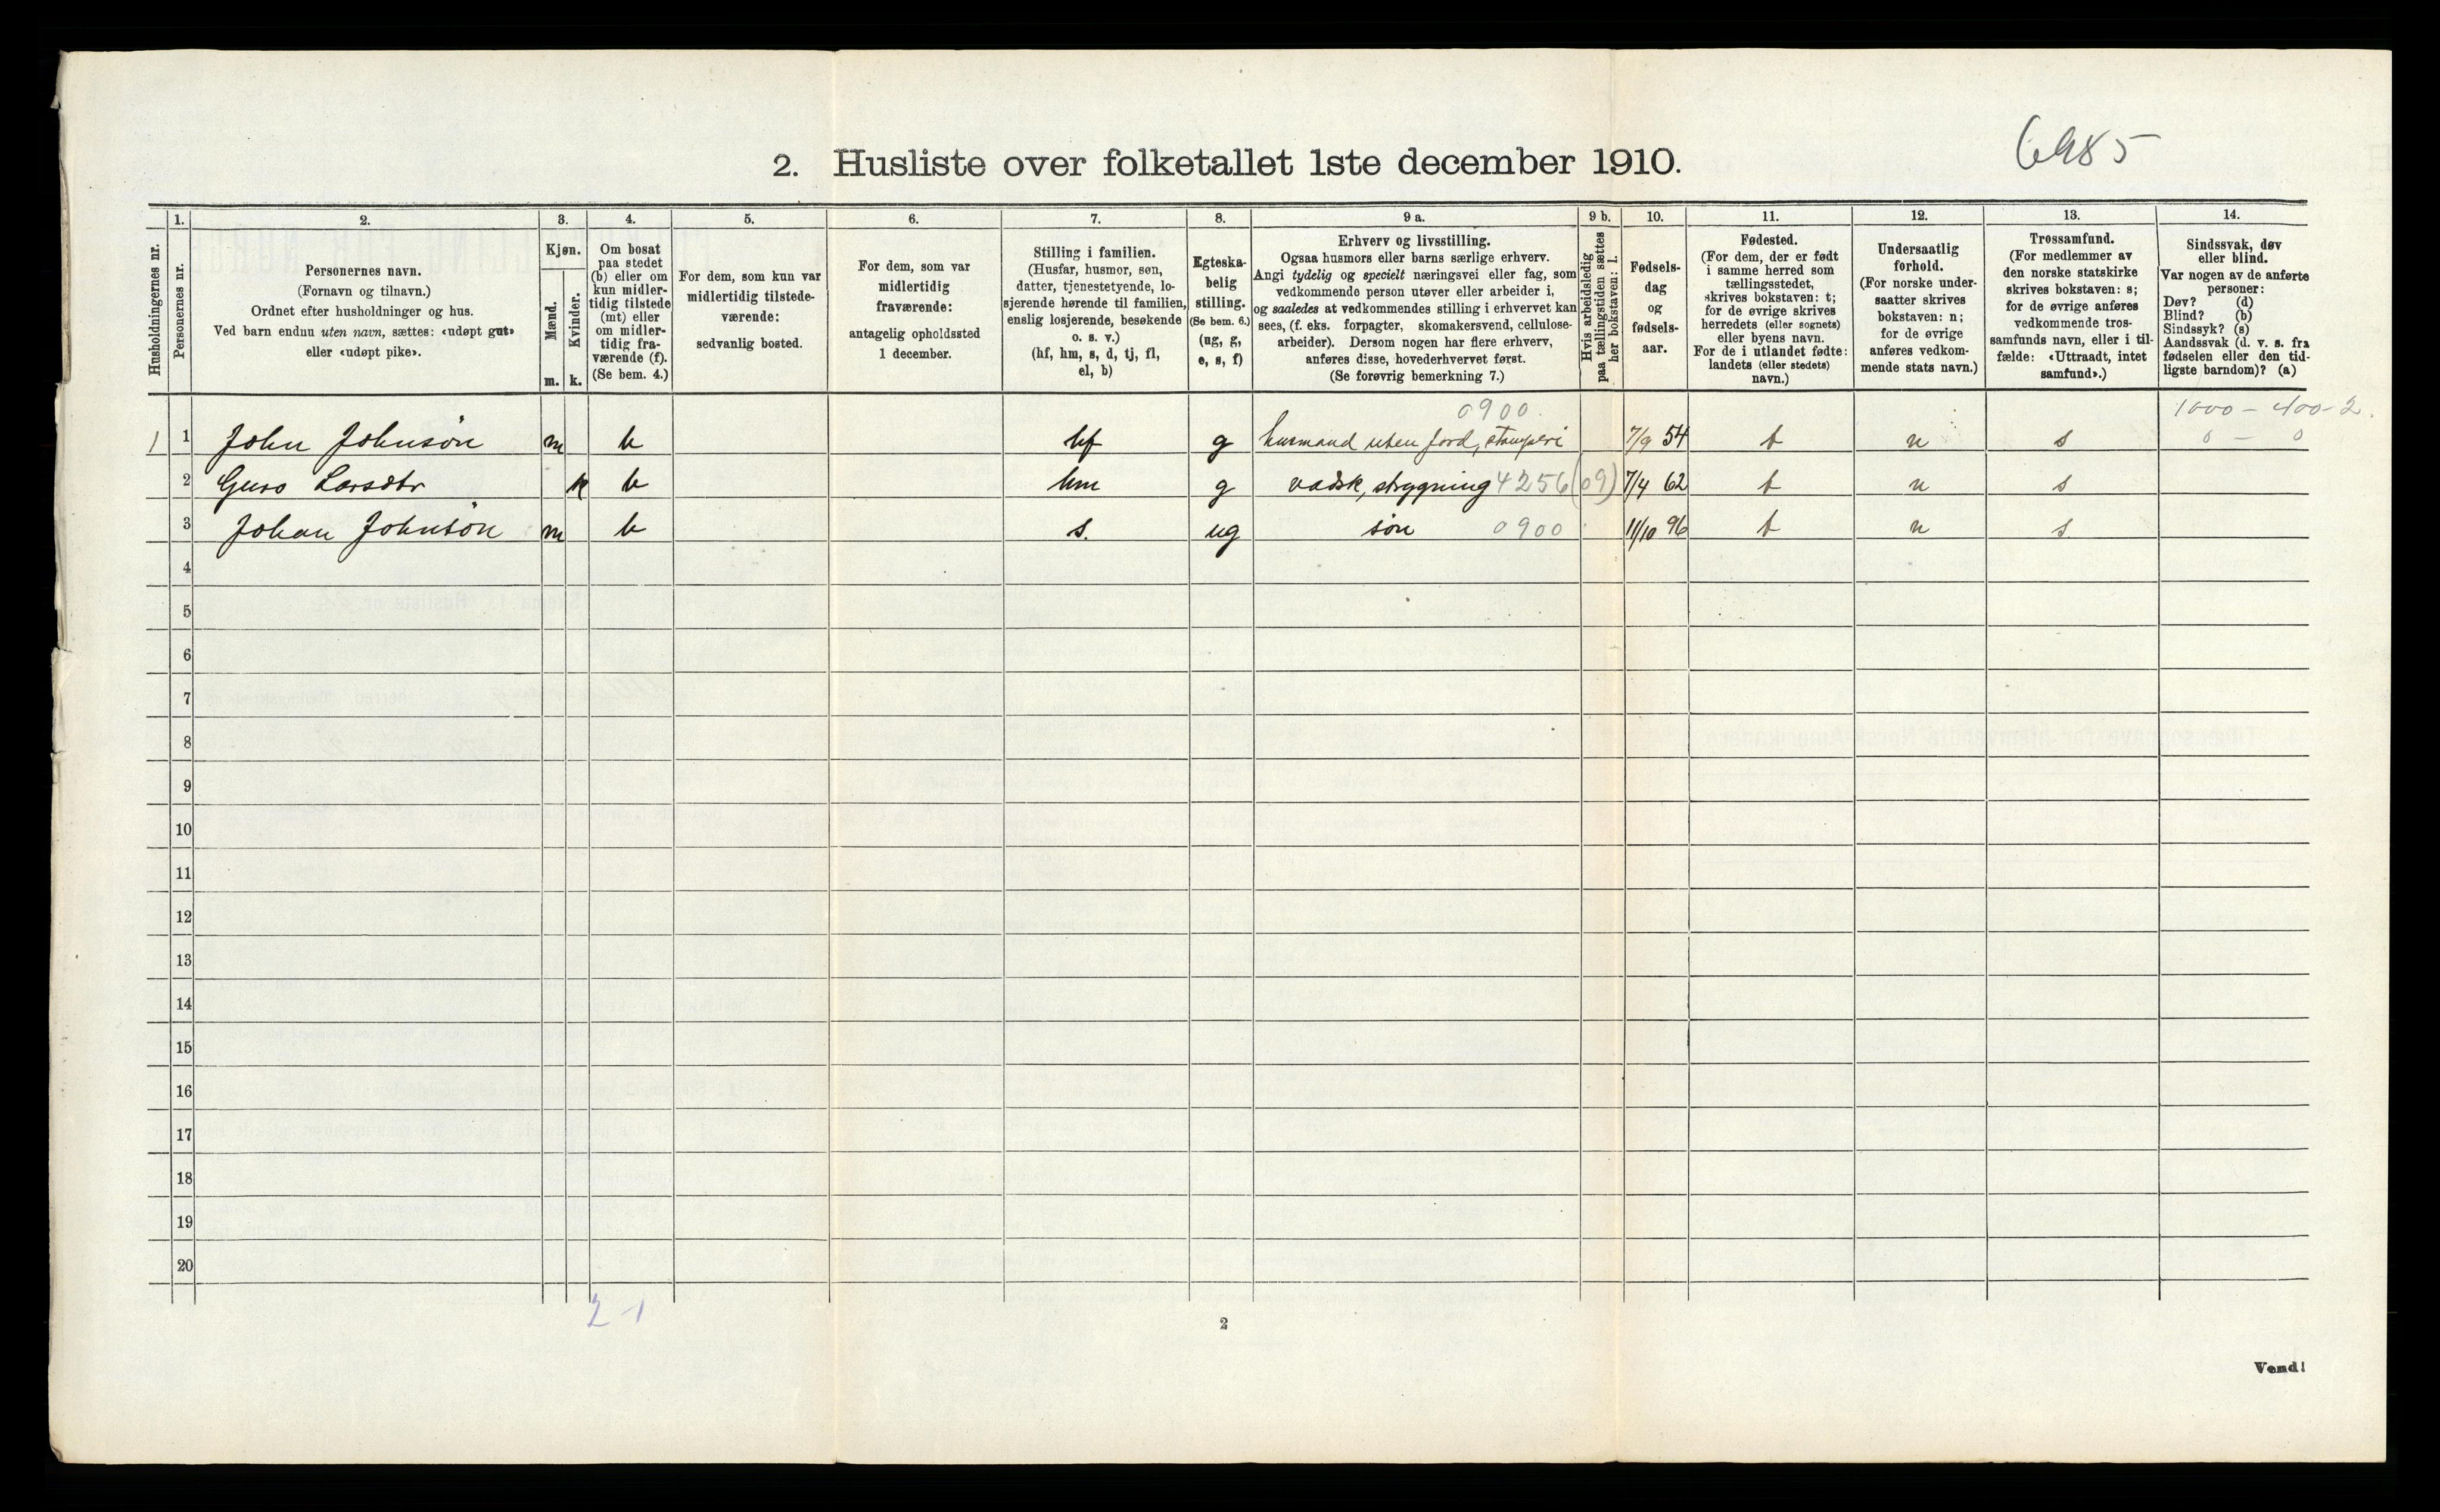 6985
2. Husliste over folketallet 1ste december 1910.
Husholdningernes nr.
1.
Personernes nr.
2.
Personernes navn.
(Fornavn og tilnavn.)
Ordnet efter husholdninger og hus.
Ved barn endnu uten navn, sættes: «udøpt gut»
eller «udøpt pike».
3.
Kjøn.
Mænd.
Kvinder.
m. k.
4.
Om bosat
paa stedet
(b) eller om
kun midler-
tidig tilstede
(mt) eller
om midler-
tidig fra-
værende (f).
(Se bem. 4.)
5.
For dem, som kun var
midlertidig tilstede-
værende:
sedvanlig bosted.
6.
For dem, som var
midlertidig
fraværende:
antagelig opholdssted
1 december.
7.
Stilling i familien.
(Husfar, husmor, søn,
datter, tjenestetyende, lo-
sjerende hørende til familien,
enslig losjerende, besøkende
o. s. v.)
(hf, hm, s, d, tj, fl,
el, b)
8.
Egteska-
belig
stilling.
(Se bem. 6.)
(ug, g,
e, s, f)
9 a.
Erhverv og livsstilling.
Ogsaa husmors eller barns særlige erhverv.
Angi tydelig og specielt næringsvei eller fag, som
vedkommende person utøver eller arbeider i,
og saaledes at vedkommendes stilling i erhvervet kan
sees, (f. eks. forpagter, skomakersvend, cellulose-
arbeider). Dersom nogen har flere erhverv,
anføres disse, hovederhvervet først.
(Se forøvrig bemerkning 7.)
9 b.
Hvis arbeidsledig
paa tællingstiden sættes
her bokstaven: l.
10.
Fødsels-
dag
og
fødsels-
aar.
11.
Fødested.
(For dem, der er født
i samme herred som
tællingsstedet,
skrives bokstaven: t;
for de øvrige skrives
herredets (eller sognets)
eller byens navn.
For de i utlandet fødte:
landets (eller stedets)
navn.)
12.
Undersaatlig
forhold.
(For norske under-
saatter skrives
bokstaven: n;
for de øvrige
anføres vedkom-
mende stats navn.)
13.
Trossamfund.
(For medlemmer av
den norske statskirke
skrives bokstaven: s;
for de øvrige anføres
vedkommende tros-
samfunds navn, eller i til-
fælde: «Uttraadt, intet
samfund».)
14.
Sindssvak, døv
eller blind.
Var nogen av de anførte
personer:
Døv? (d)
Blind? (b)
Sindssyk? (s)
Aandssvak (d. v. s. fra
fødselen eller den tid-
ligste barndom)? (a)
0900. 1000 – 400–2.
1 1 John Johnsön m b hf g husmand uten jord, stamperi 7/9 54 t n s 0 – 0
2 Guro Larsdtr k b hm g vadsk, strygning 4256 (09) 7/4 62 t n s
3 Johan Johnsön m b s. ug sön 0900 11/10 96 t n s
4
5
6
7
8
9
10
11
12
13
14
15
16
17
18
19
20
2 1
2
Vend!